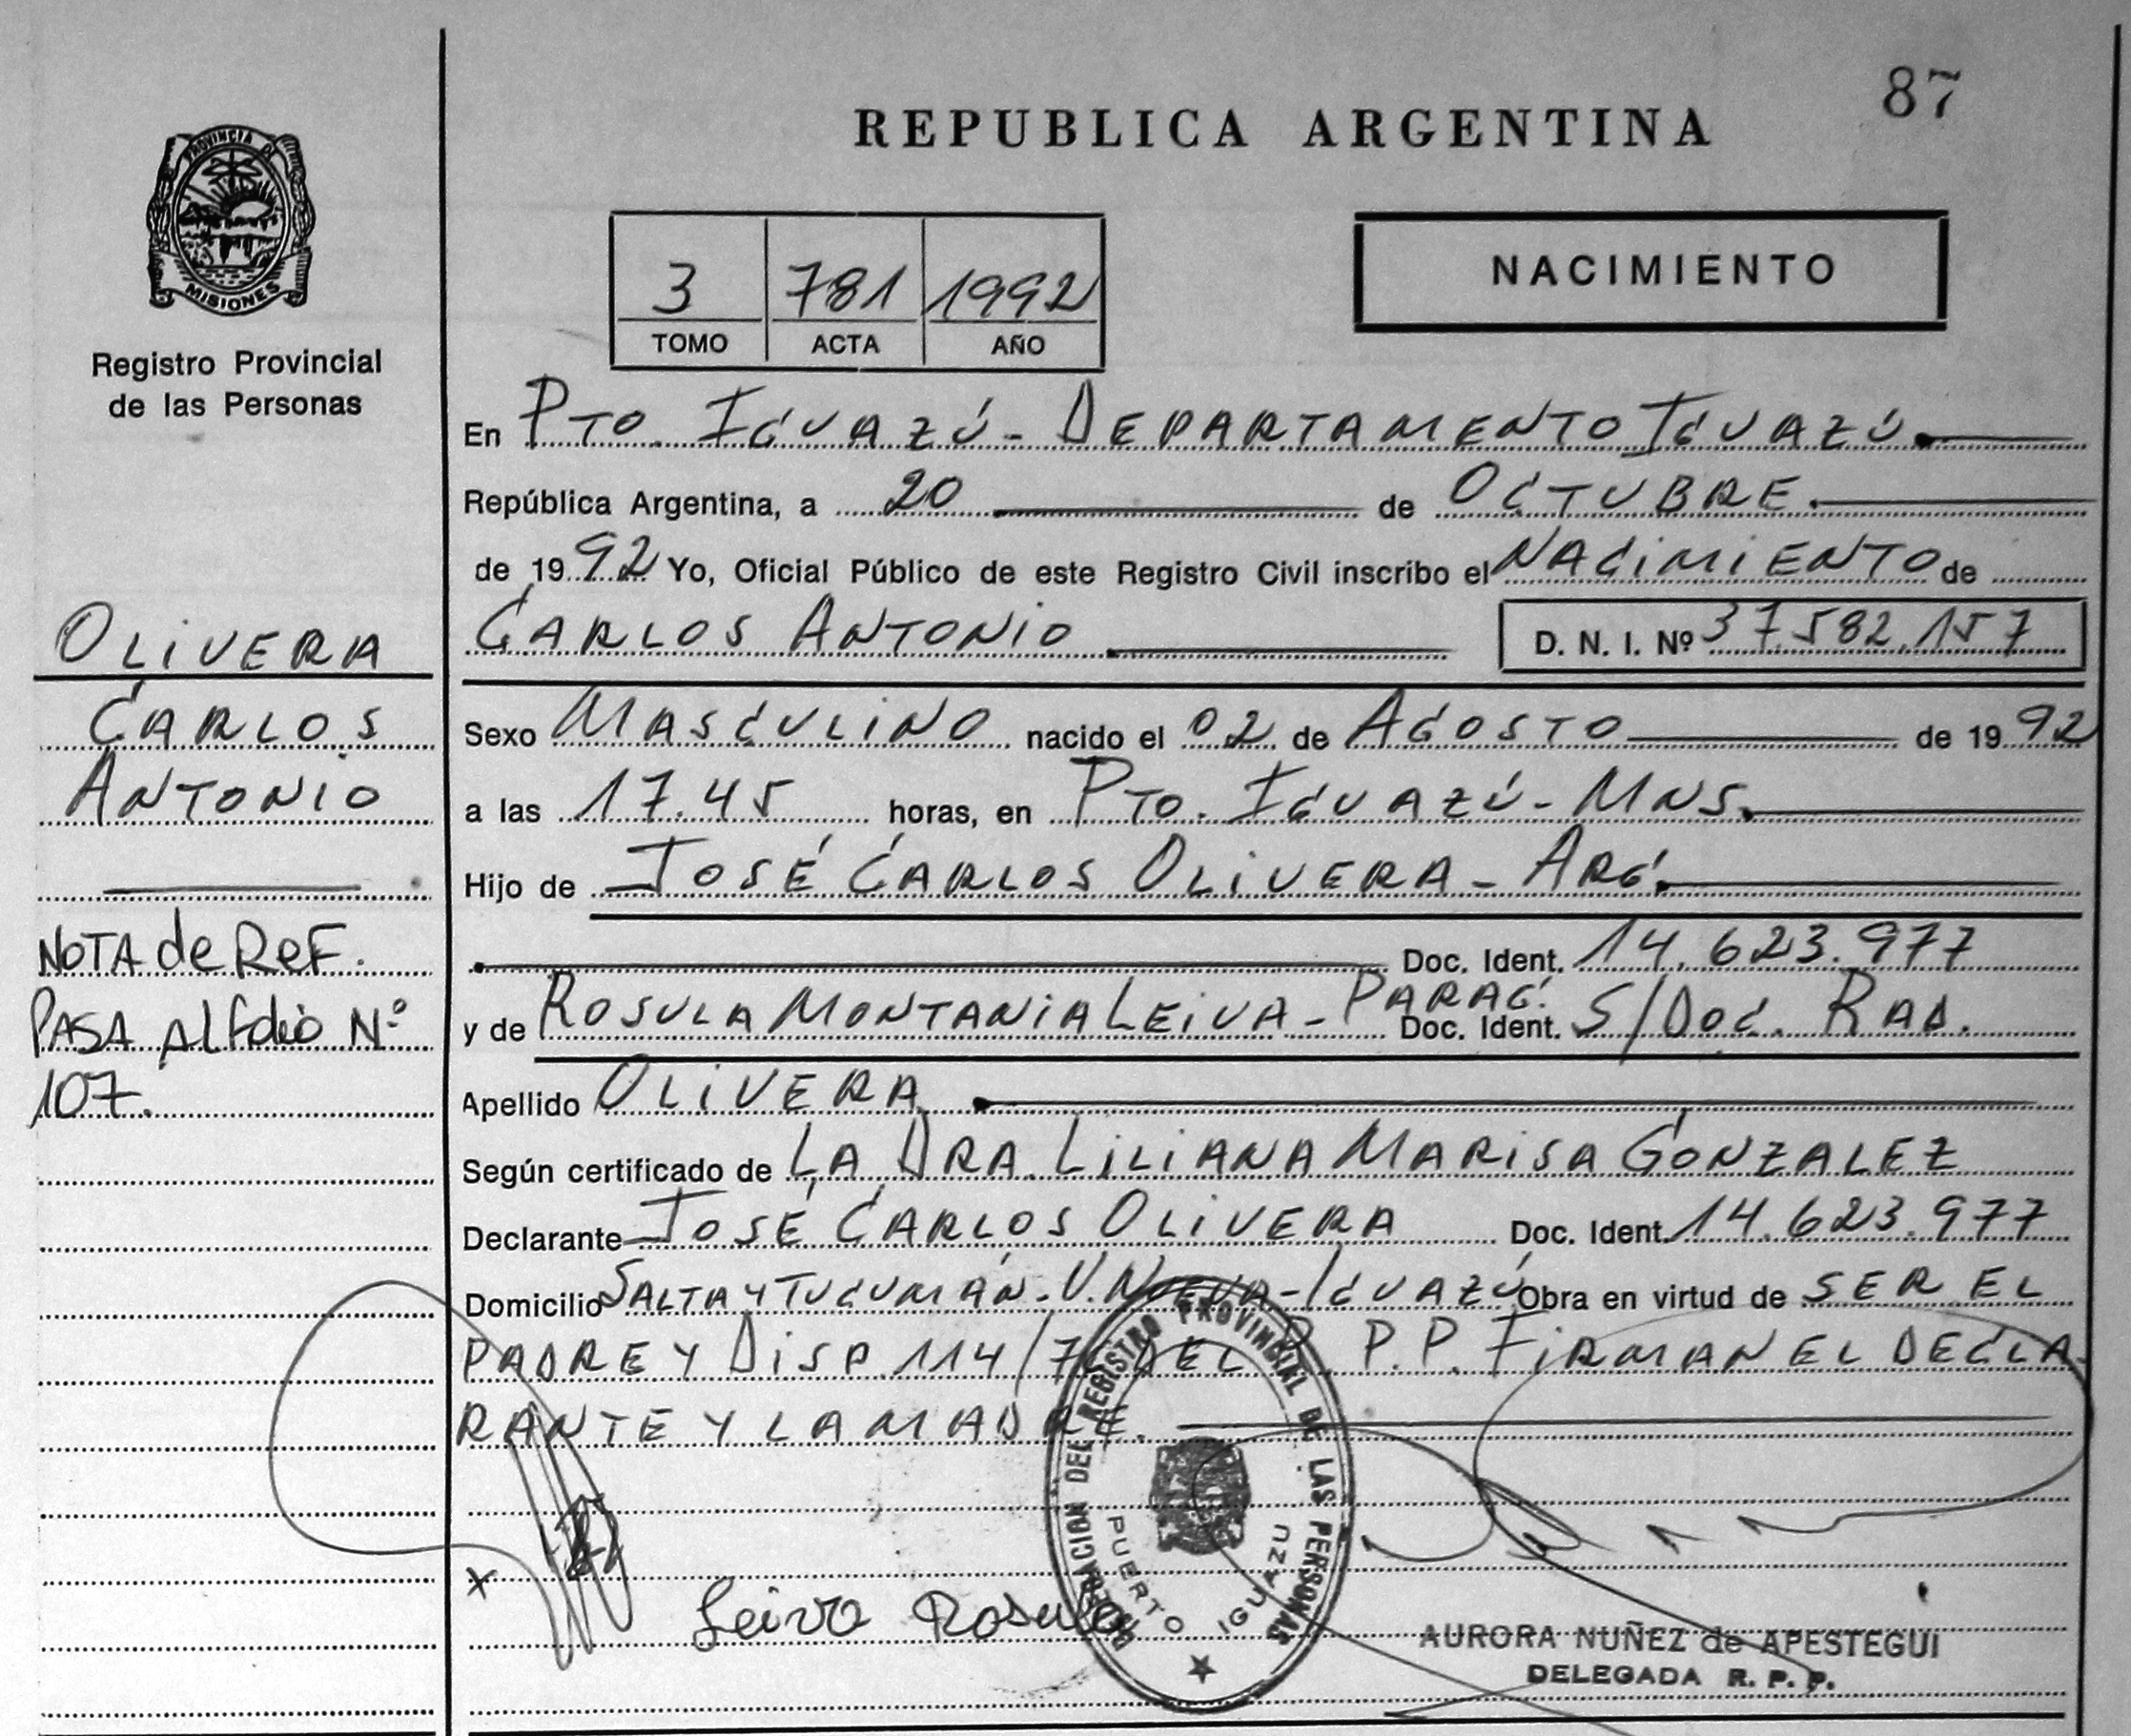 87
REPUBLICA ARGENTINA
PROVINCIA DE
MISIONES
Registro Provincial
de las Personas
3 781 1992
TOMO ACTA AÑO
NACIMIENTO
En PTO. IGUAZÚ - DEPARTAMENTO IGUAZÚ.
República Argentina, a 20 de OCTUBRE.
de 1992 Yo, Oficial Público de este Registro Civil inscribo el NACIMIENTO de
CARLOS ANTONIO D. N. I. Nº 37.582.157
OLIVERA
CARLOS
ANTONIO
NOTA de ReF.
PASA Al Folio Nº
107.
Sexo MASCULINO nacido el 02 de AGOSTO de 1992
a las 17.45 horas, en PTO. IGUAZÚ - MNS.
Hijo de JOSÉ CARLOS OLIVERA - ARG.
Doc. Ident. 14.623.977
y de ROSULA MONTANIA LEIVA - PARAG. Doc. Ident. S/DOC. RAD.
Apellido OLIVERA
Según certificado de LA DRA. LILIANA MARISA GONZALEZ
Declarante JOSÉ CARLOS OLIVERA Doc. Ident. 14.623.977
Domicilio SALTA Y TUCUMÁN - V. NUEVA - IGUAZÚ Obra en virtud de SER EL
PADRE Y DISP. 114/ DEL R. P. P. FIRMAN EL DECLA
RANTE Y LA MADRE.
DEL REGISTRO PROVINCIAL DE LAS PERSONAS
PUERTO IGUAZU
x
Leiva Rosula
AURORA NUÑEZ de APESTEGUI
DELEGADA R. P. P.